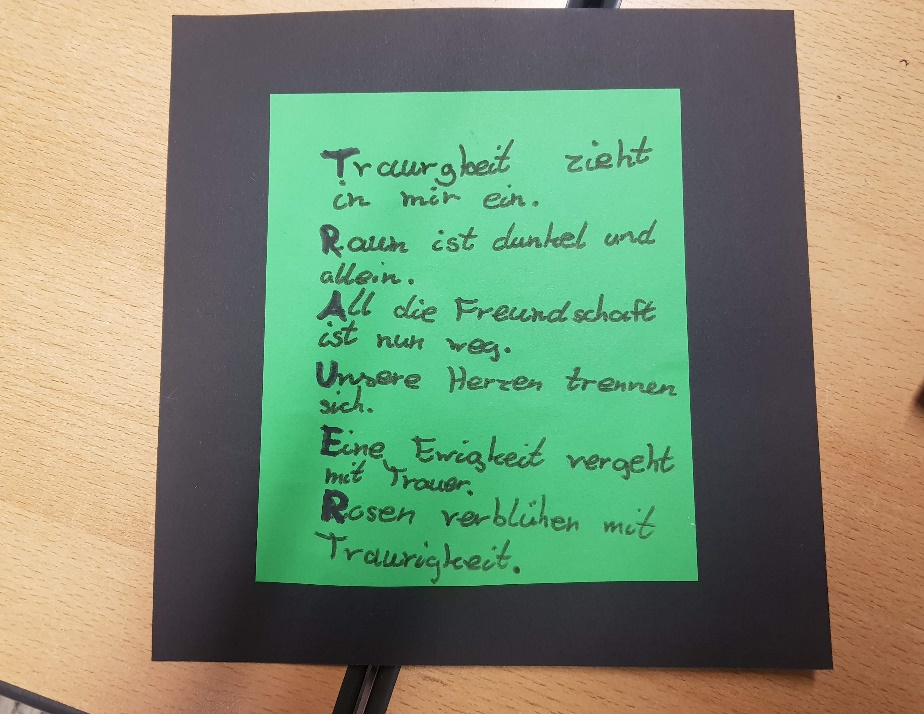 Traurgkeit zieht
in mir ein.
Raum ist dunkel und
allein.
All die Freundschaft
ist nun weg.
Unsere Herzen trennen
sich.
Eine Ewigkeit vergeht
mit Trauer.
Rosen verblühen mit
Traurigkeit.